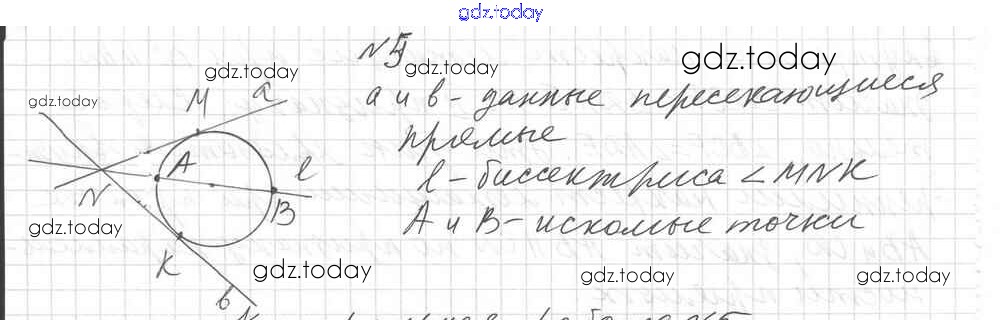 gdz.today
N 5
gdz.today
gdz.today
gdz.today
gdz.today
M
a
a и b - данные пересекающиеся
прямые
A
l
l - биссектриса ∠MNK
N
B
A и B - искомые точки
gdz.today
K
gdz.today
gdz.today
gdz.today
b